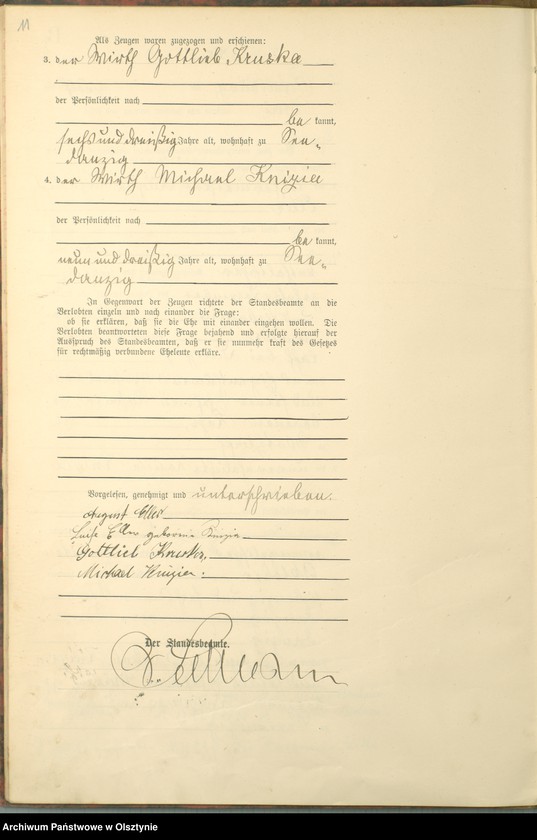 11
Als Zeugen waren zugezogen und erschienen:
3. der Wirth Gottlieb Kruska
der Persönlichkeit nach
be kannt,
sechsunddreißig Jahre alt, wohnhaft zu See-
danzig
4. der Wirth Michael Knizia
der Persönlichkeit nach
be kannt,
neununddreißig Jahre alt, wohnhaft zu See-
danzig
In Gegenwart der Zeugen richtete der Standesbeamte an die
Verlobten einzeln und nach einander die Frage:
ob sie erklären, daß sie die Ehe mit einander eingehen wollen. Die
Verlobten beantworteten diese Frage bejahend und erfolgte hierauf der
Ausspruch des Standesbeamten, daß er sie nunmehr kraft des Gesetzes
für rechtmäßig verbundene Eheleute erkläre.
Vorgelesen, genehmigt und unterschrieben.
August
Luise geborene
Gottlieb Kruska
Michael
Der Standesbeamte.
Archiwum Państwowe w Olsztynie